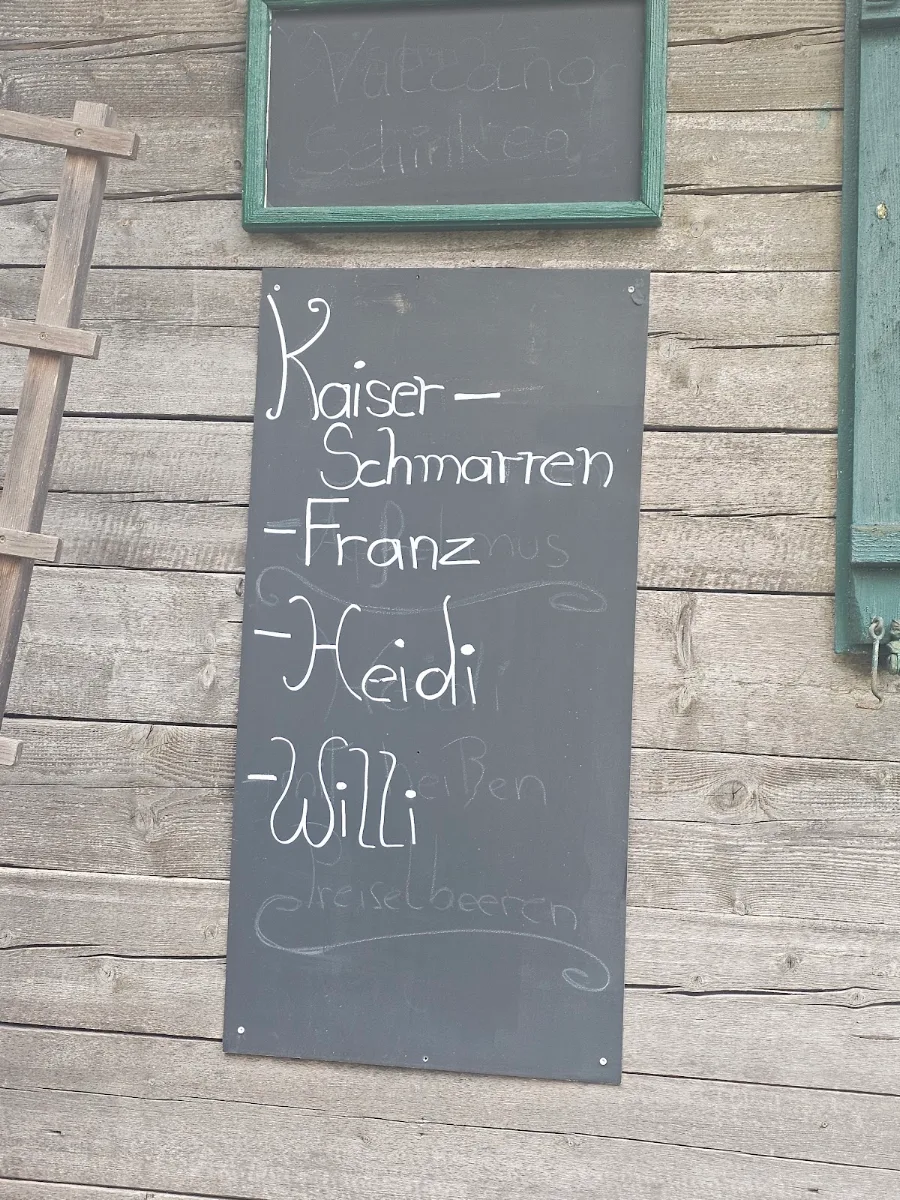 Vulcano
Schinken
Kaiser-
Schmarren
-Franz
-Heidi
-Willi
Preiselbeeren